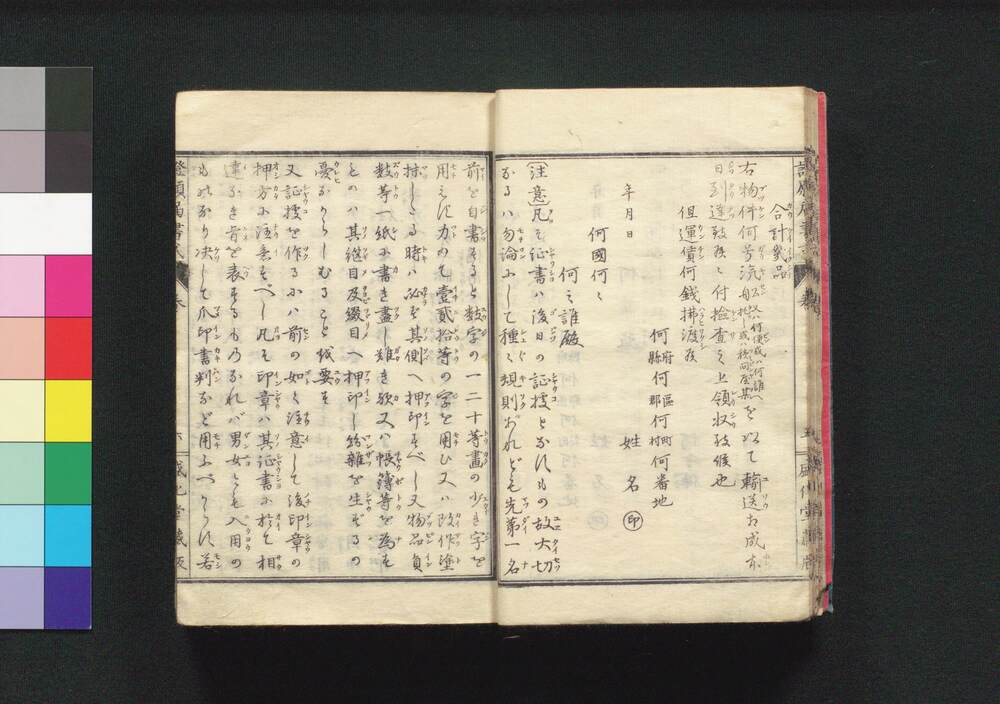 合計幾品
右物件何号汽船又ハ何便或ハ何誰ヘ托シ或ハ我問屋某ヘを以て輸送相成本
日到達致候ニ付検査之上領収致候也
但運債何銭拂渡候
何府縣何區郡何町村何番地
年月日 姓名㊞
何國何々
何之誰殿
(注意)凡そ証書ハ後日の証拠となるもの故大切
なるハ勿論にして種々規則あれども先第一名
前を自書すると数字の一二十等畫の少き字を
用ゑに力めて壹貳拾等の字を用ひ又ハ改作塗
抹したる時ハ必ず其側へ押印すべし又物品員
数等一紙に書き盡し難き歟又ハ帳簿等を為す
ものハ其継目及綴目へ押印し紛雜を生ずるの
憂なからしむること緊要
又証拠を作るにハ前の如く注意して後印章の
押方に注意すべし凡そ印章ハ其証書に於て相
違なき旨を表するものなれバ男女とも入用の
ものなり决して爪印書判など用ふべからず若
證願届書式
盛化堂蔵版